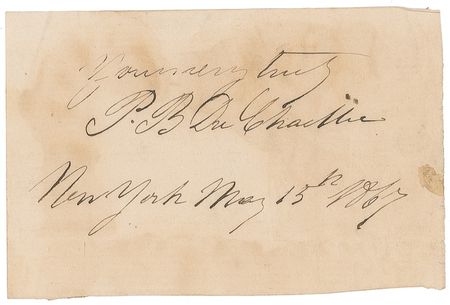 Yours very truly
P. B Du Chaillu
New York May 15th 1867